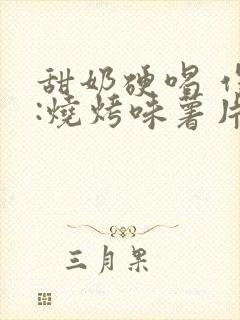 甜奶硬唱
:燒烤味薯片
三月果